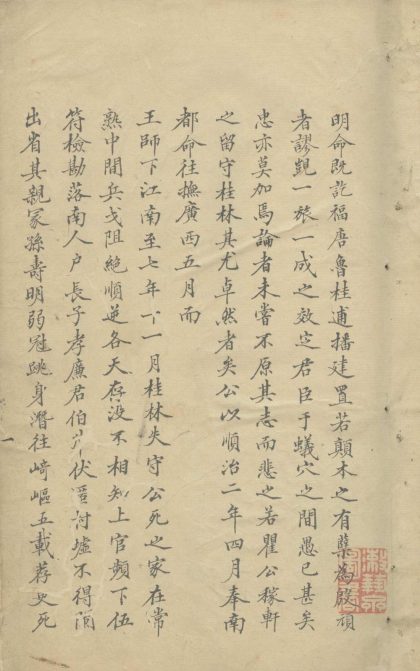 明命既訖福唐魯桂逋播建置若顛木之有蘖為殷頑
者謬覬一旅一成之效定君臣于蟻穴之間愚已甚矣
忠亦莫加焉論者未嘗不原其志而悲之若瞿公稼軒
之留守桂林其尤卓然者矣公以順治二年四月奉南
都命往撫廣西五月而
王師下江南至七年十一月桂林失守公死之家在常
熟中間兵戈阻絶順逆各天存没不相知上官頻下伍
符檢勘落南人户長子孝廉君伯升伏匿村墟不得闌
出省其親冢孫壽明弱冠跳身潛往崎嶇五載荐更死